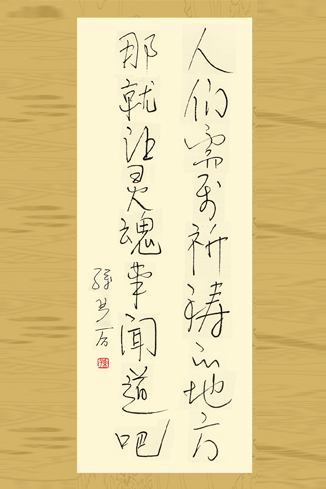 人们需要祈祷的地方
那就让灵魂闻道吧